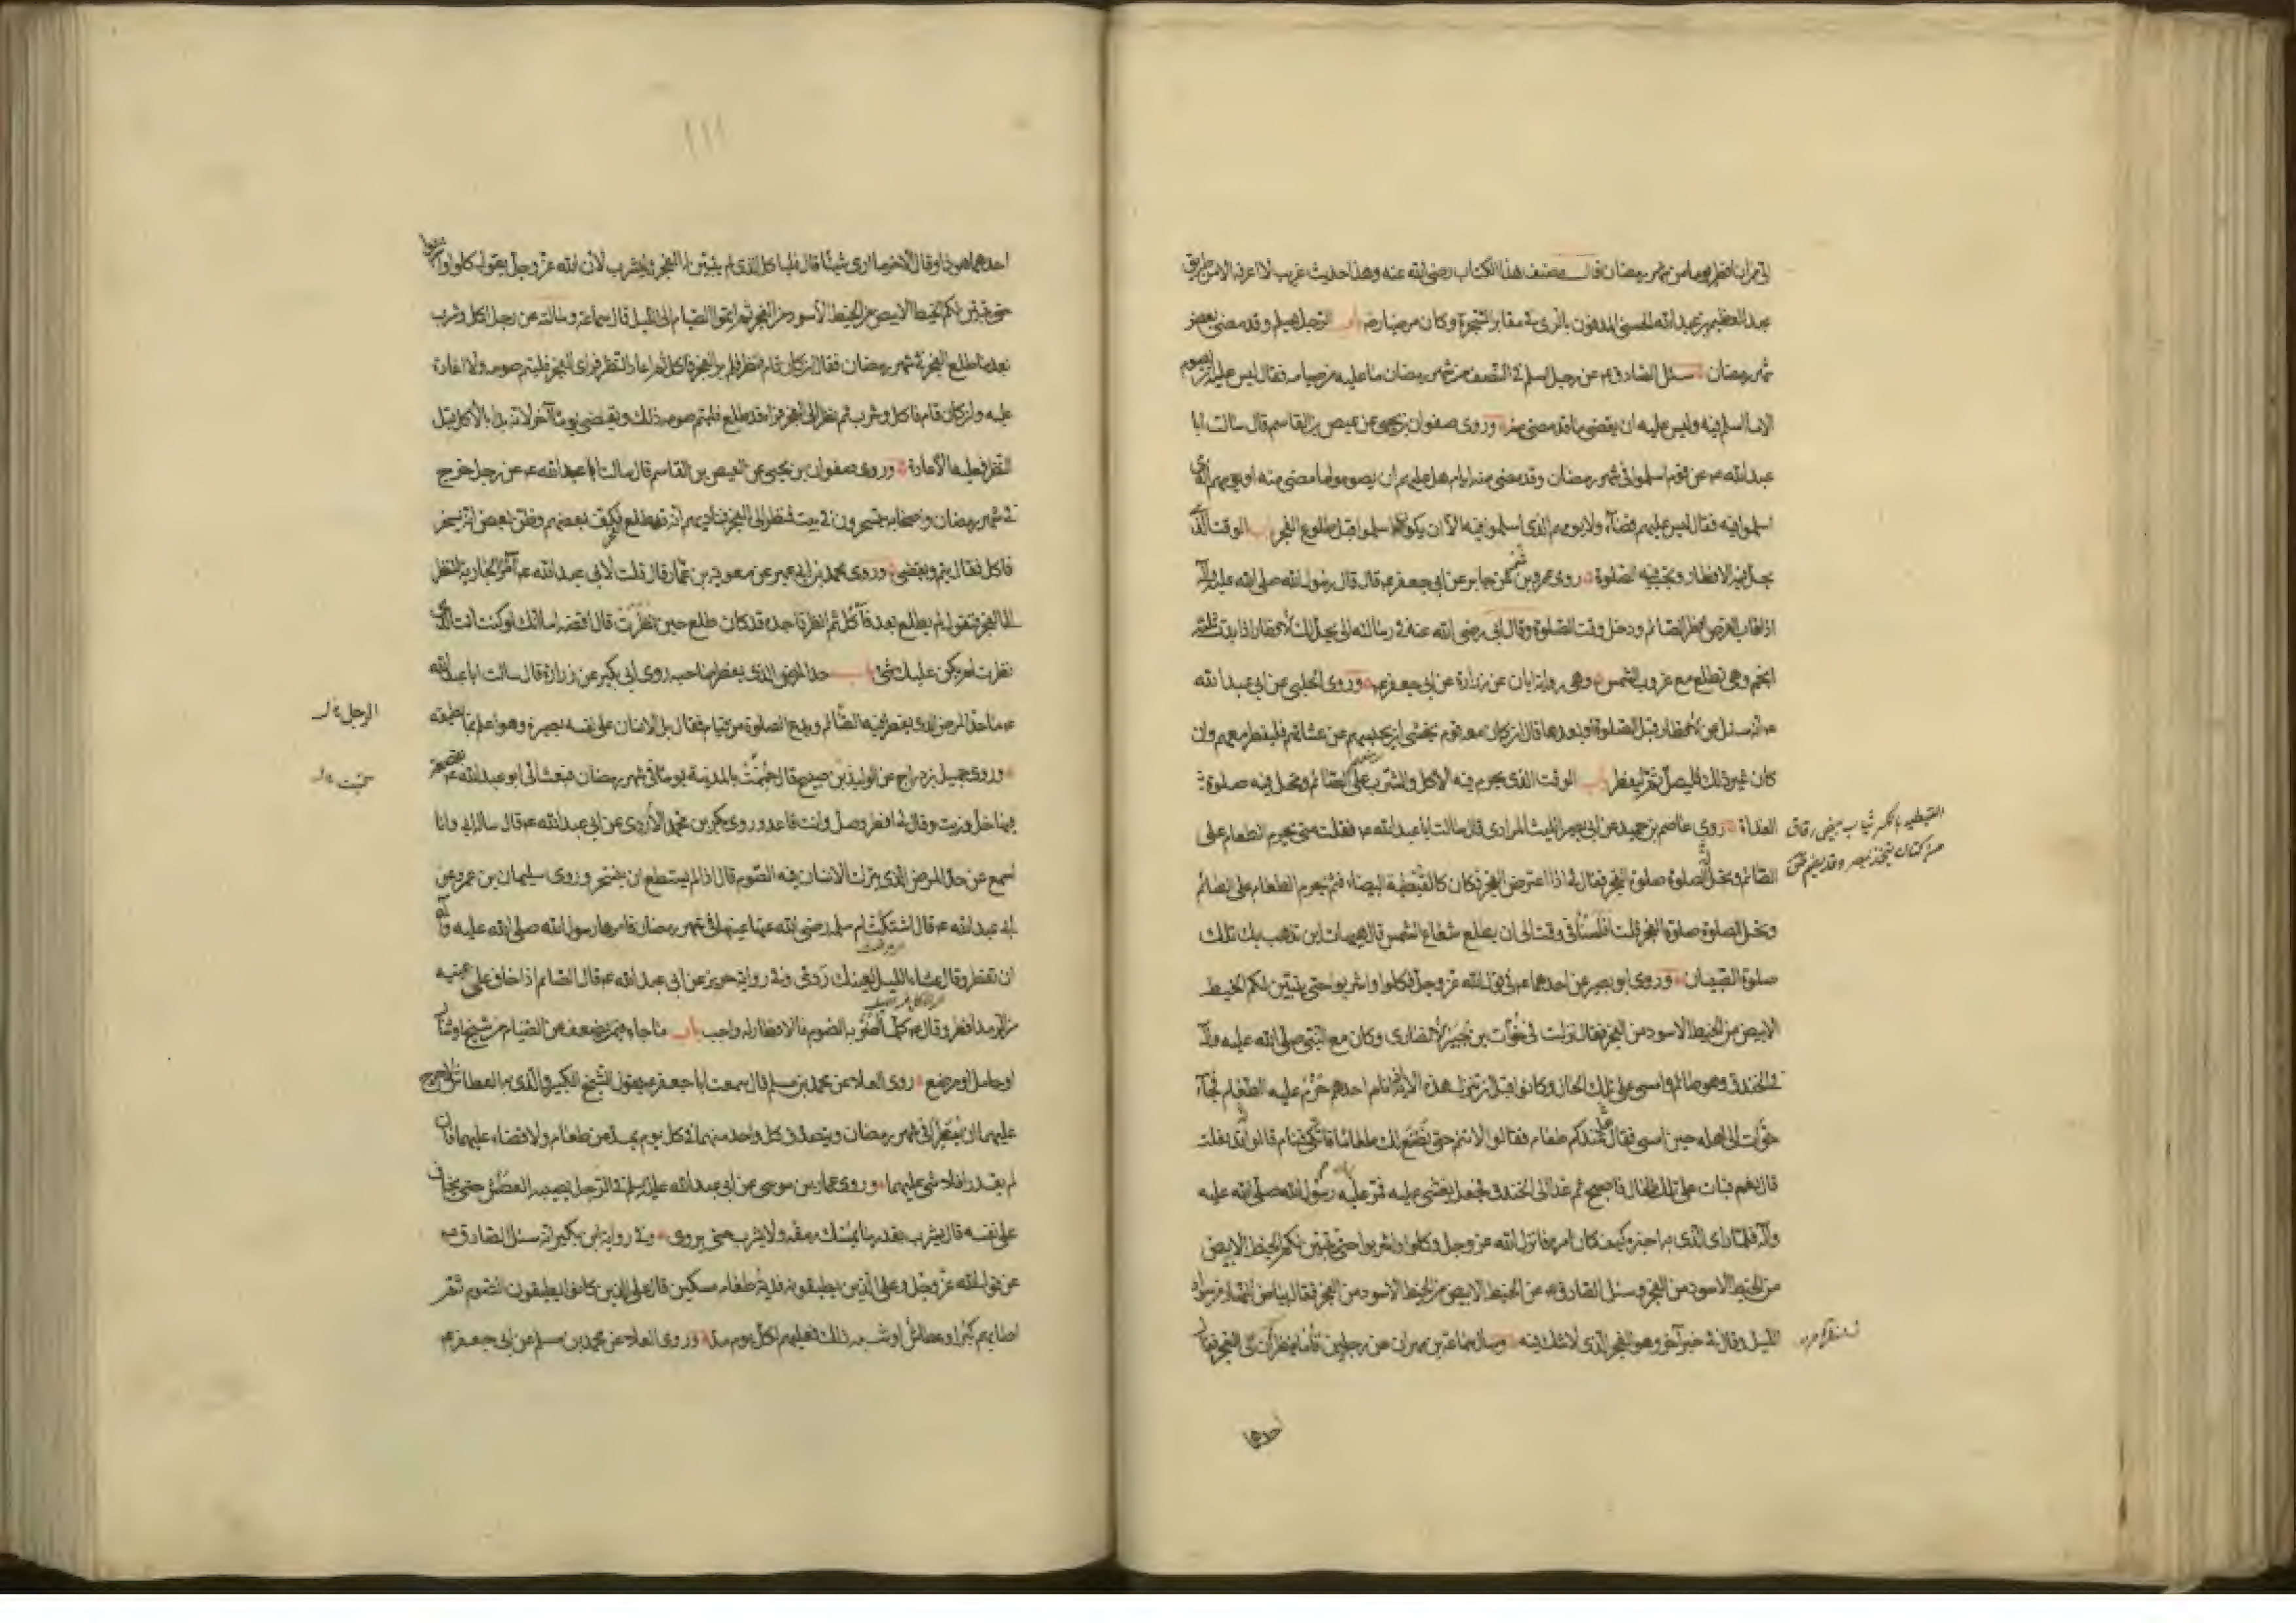 لتمرابا فطر يوما من شهر رمضان قال مصنف هذا الكتاب رضى الله عنه وهذا حديث غريب لا اعرفه الا من طريق
عبد العظيم بن عبد الله الحسنى المدفون بالرى فى مقابر الشجرة وكان مرضيا رضه باب الرجل يسلم وقد مضى بعض
شهر رمضان سئل الصادق ع عن رجل اسلم فى النصف من شهر رمضان ما عليه من صيامه فقال ليس عليه ان يصوم
الا ما اسلم فيه وليس عليه ان يقضى ما قد مضى منه وروى صفوان بن يحيى عن عيص بن القاسم قال سالت ابا
عبد الله ع عن قوم اسلموا فى شهر رمضان وقد مضى منه ايام هل عليهم ان يصوموا ما مضى منه او يومهم الذى
اسلموا فيه فقال ليس عليهم قضاء ولا يومهم الذى اسلموا فيه الا ان يكونوا اسلموا قبل طلوع الفجر باب الوقت الذى
يحل فيه الافطار وتجب فيه الصلوة روى عمرو بن شمر عن جابر عن ابى جعفر ع قال قال رسول الله صلى الله عليه وآله
اذا غاب القرص افطر الصائم ودخل وقت الصلوة وقال ابى رضى الله عنه فى رسالته الى يحل لك الافطار اذا بدت ثلثة
انجم وهى تطلع مع غروب الشمس وهى رواية ابان عن زرارة عن ابى جعفر ع وروى الحلبى عن ابى عبد الله
ع انه سئل عن الافطار قبل الصلوة او بعدها قال ان كان معه قوم يخشى ان يحبسهم عن عشائهم فليفطر معهم وان
كان غير ذلك فليصل ثم ليفطر باب الوقت الذى يحرم فيه الاكل والشرب على الصائم وتحل فيه صلوة
الغداة روى عاصم بن حميد عن ابى بصير الليث المرادى قال سالت ابا عبد الله ع فقلت متى يحرم الطعام على
الصائم وتحل الصلوة صلوة الفجر فقال لى اذا اعترض الفجر فكان كالقبطية البيضاء فثم يحرم الطعام على الصائم
وتحل الصلوة صلوة الفجر قلت افلسنا فى وقت الى ان يطلع شعاع الشمس قال هيهات اين تذهب بك تلك
صلوة الصبيان وروى ابو بصير عن احدهما ع فى قول الله عز وجل فكلوا واشربوا حتى يتبين لكم الخيط
الابيض من الخيط الاسود من الفجر فقال نزلت فى خوات بن جبير الانصارى وكان مع النبى صلى الله عليه وآله
فى الخندق وهو صائم وامسى على تلك الحال وكانوا قبل ان تنزل هذه الآية اذا نام احدهم حرم عليه الطعام فجاء
خوات الى اهله حين امسى فقال عندكم طعام فقالوا لا تنم حتى نصنع لك طعاما فاتكى فنام قالوا قد فعلت
قال نعم فبات على تلك الحال فاصبح ثم غدا الى الخندق فجعل يغشى عليه فمر عليه رسول الله صلى الله عليه
وآله فلما راى الذى به اخبره كيف كان امره فانزل الله عز وجل وكلوا واشربوا حتى يتبين لكم الخيط الابيض
من الخيط الاسود من الفجر وسئل الصادق ع عن الخيط الابيض من الخيط الاسود من الفجر فقال بياض النهار من سواد
الليل وقال فى خبر آخر وهو الفجر الذى لا شك فيه وسال سماعة بن مهران عن رجلين قاما ينظران الى الفجر فقال
القبطية بالكسر ثياب بيض رقاق
من كتان يتخذ بمصر وقد يضم
احدهما
١١١
احدهما هو ذا وقال الآخر ما ارى شيئا قال فلياكل الذى لم يتبين له الفجر وليشرب لان الله عز وجل يقول كلوا واشربوا
حتى يتبين لكم الخيط الابيض من الخيط الاسود من الفجر ثم اتموا الصيام الى الليل قال سماعة وسالته عن رجل اكل وشرب
بعد ما طلع الفجر فى شهر رمضان فقال ان كان قام فنظر فلم ير الفجر فاكل ثم اعاد النظر فراى الفجر فليتم صومه ولا اعادة
عليه وان كان قام فاكل وشرب ثم نظر الى الفجر فراه قد طلع فليتم صومه ذلك ويقضى يوما آخر لانه بدا بالاكل قبل
النظر فعليه الاعادة وروى صفوان بن يحيى عن العيص بن القاسم قال سالت ابا عبد الله ع عن رجل خرج
فى شهر رمضان واصحابه يتسحرون فى بيت فنظر الى الفجر فناداهم انه قد طلع فكف بعضهم وظن بعض انه يسخر
فاكل فقال يتم ويقضى وروى محمد بن ابى عمير عن معوية بن عمار قال قلت لابى عبد الله ع آمر الجارية لتنظر
الى الفجر فتقول لم يطلع بعد فآكل ثم انظر فاجده قد كان طلع حين نظرت قال اقضه اما انك لو كنت انت الذى
نظرت لم يكن عليك شئ باب حد المرض الذى يفطر صاحبه روى ابن بكير عن زرارة قال سالت ابا عبد الله
ع ما حد المرض الذى يفطر فيه الصائم ويدع الصلوة من قيام فقال بل الانسان على نفسه بصيرة وهو اعلم بما يطيقه
وروى جميل بن دراج عن الوليد بن صبيح قال حممت بالمدينة يوما فى شهر رمضان فبعث الى ابو عبد الله ع بقصعة
فيها خل وزيت وقال لى افطر وصل وانت قاعد وروى بكر بن محمد الازدى عن ابى عبد الله ع قال ساله ابى وانا
اسمع عن حد المرض الذى يترك الانسان فيه الصوم قال اذا لم يستطع ان يتسحر وروى سليمان بن عمرو عن
ابى عبد الله ع قال اشتكت ام سلمة رضى الله عنها عينها فى شهر رمضان فامرها رسول الله صلى الله عليه وآله
ان تفطر وقال عشاء الليل لعينك ردى وفى رواية حريز عن ابى عبد الله ع قال الصائم اذا خاف على عينيه
من الرمد افطر وقال ع كلما اضر به الصوم فالافطار له واجب باب ما جاء فيمن يضعف عن الصيام من شيخ او شاب
او حامل او مرضع روى العلاء عن محمد بن مسلم قال سمعت ابا جعفر ع يقول الشيخ الكبير والذى به العطاش لا حرج
عليهما ان يفطرا فى شهر رمضان ويتصدق كل واحد منهما فى كل يوم بمد من طعام ولا قضاء عليهما فان
لم يقدرا فلا شئ عليهما وروى عمار بن موسى عن ابى عبد الله عليه السلم فى الرجل يصيبه العطش حتى يخاف
على نفسه قال يشرب بقدر ما يمسك رمقه ولا يشرب حتى يروى وفى رواية ابن بكير انه سئل الصادق ع
عن قول الله عز وجل وعلى الذين يطيقونه فدية طعام مسكين قال على الذين كانوا يطيقون الصوم ثم
اصابهم كبر او عطاش او شبه ذلك فعليهم لكل يوم مد وروى العلاء عن محمد بن مسلم عن ابى جعفر ع
الرجل